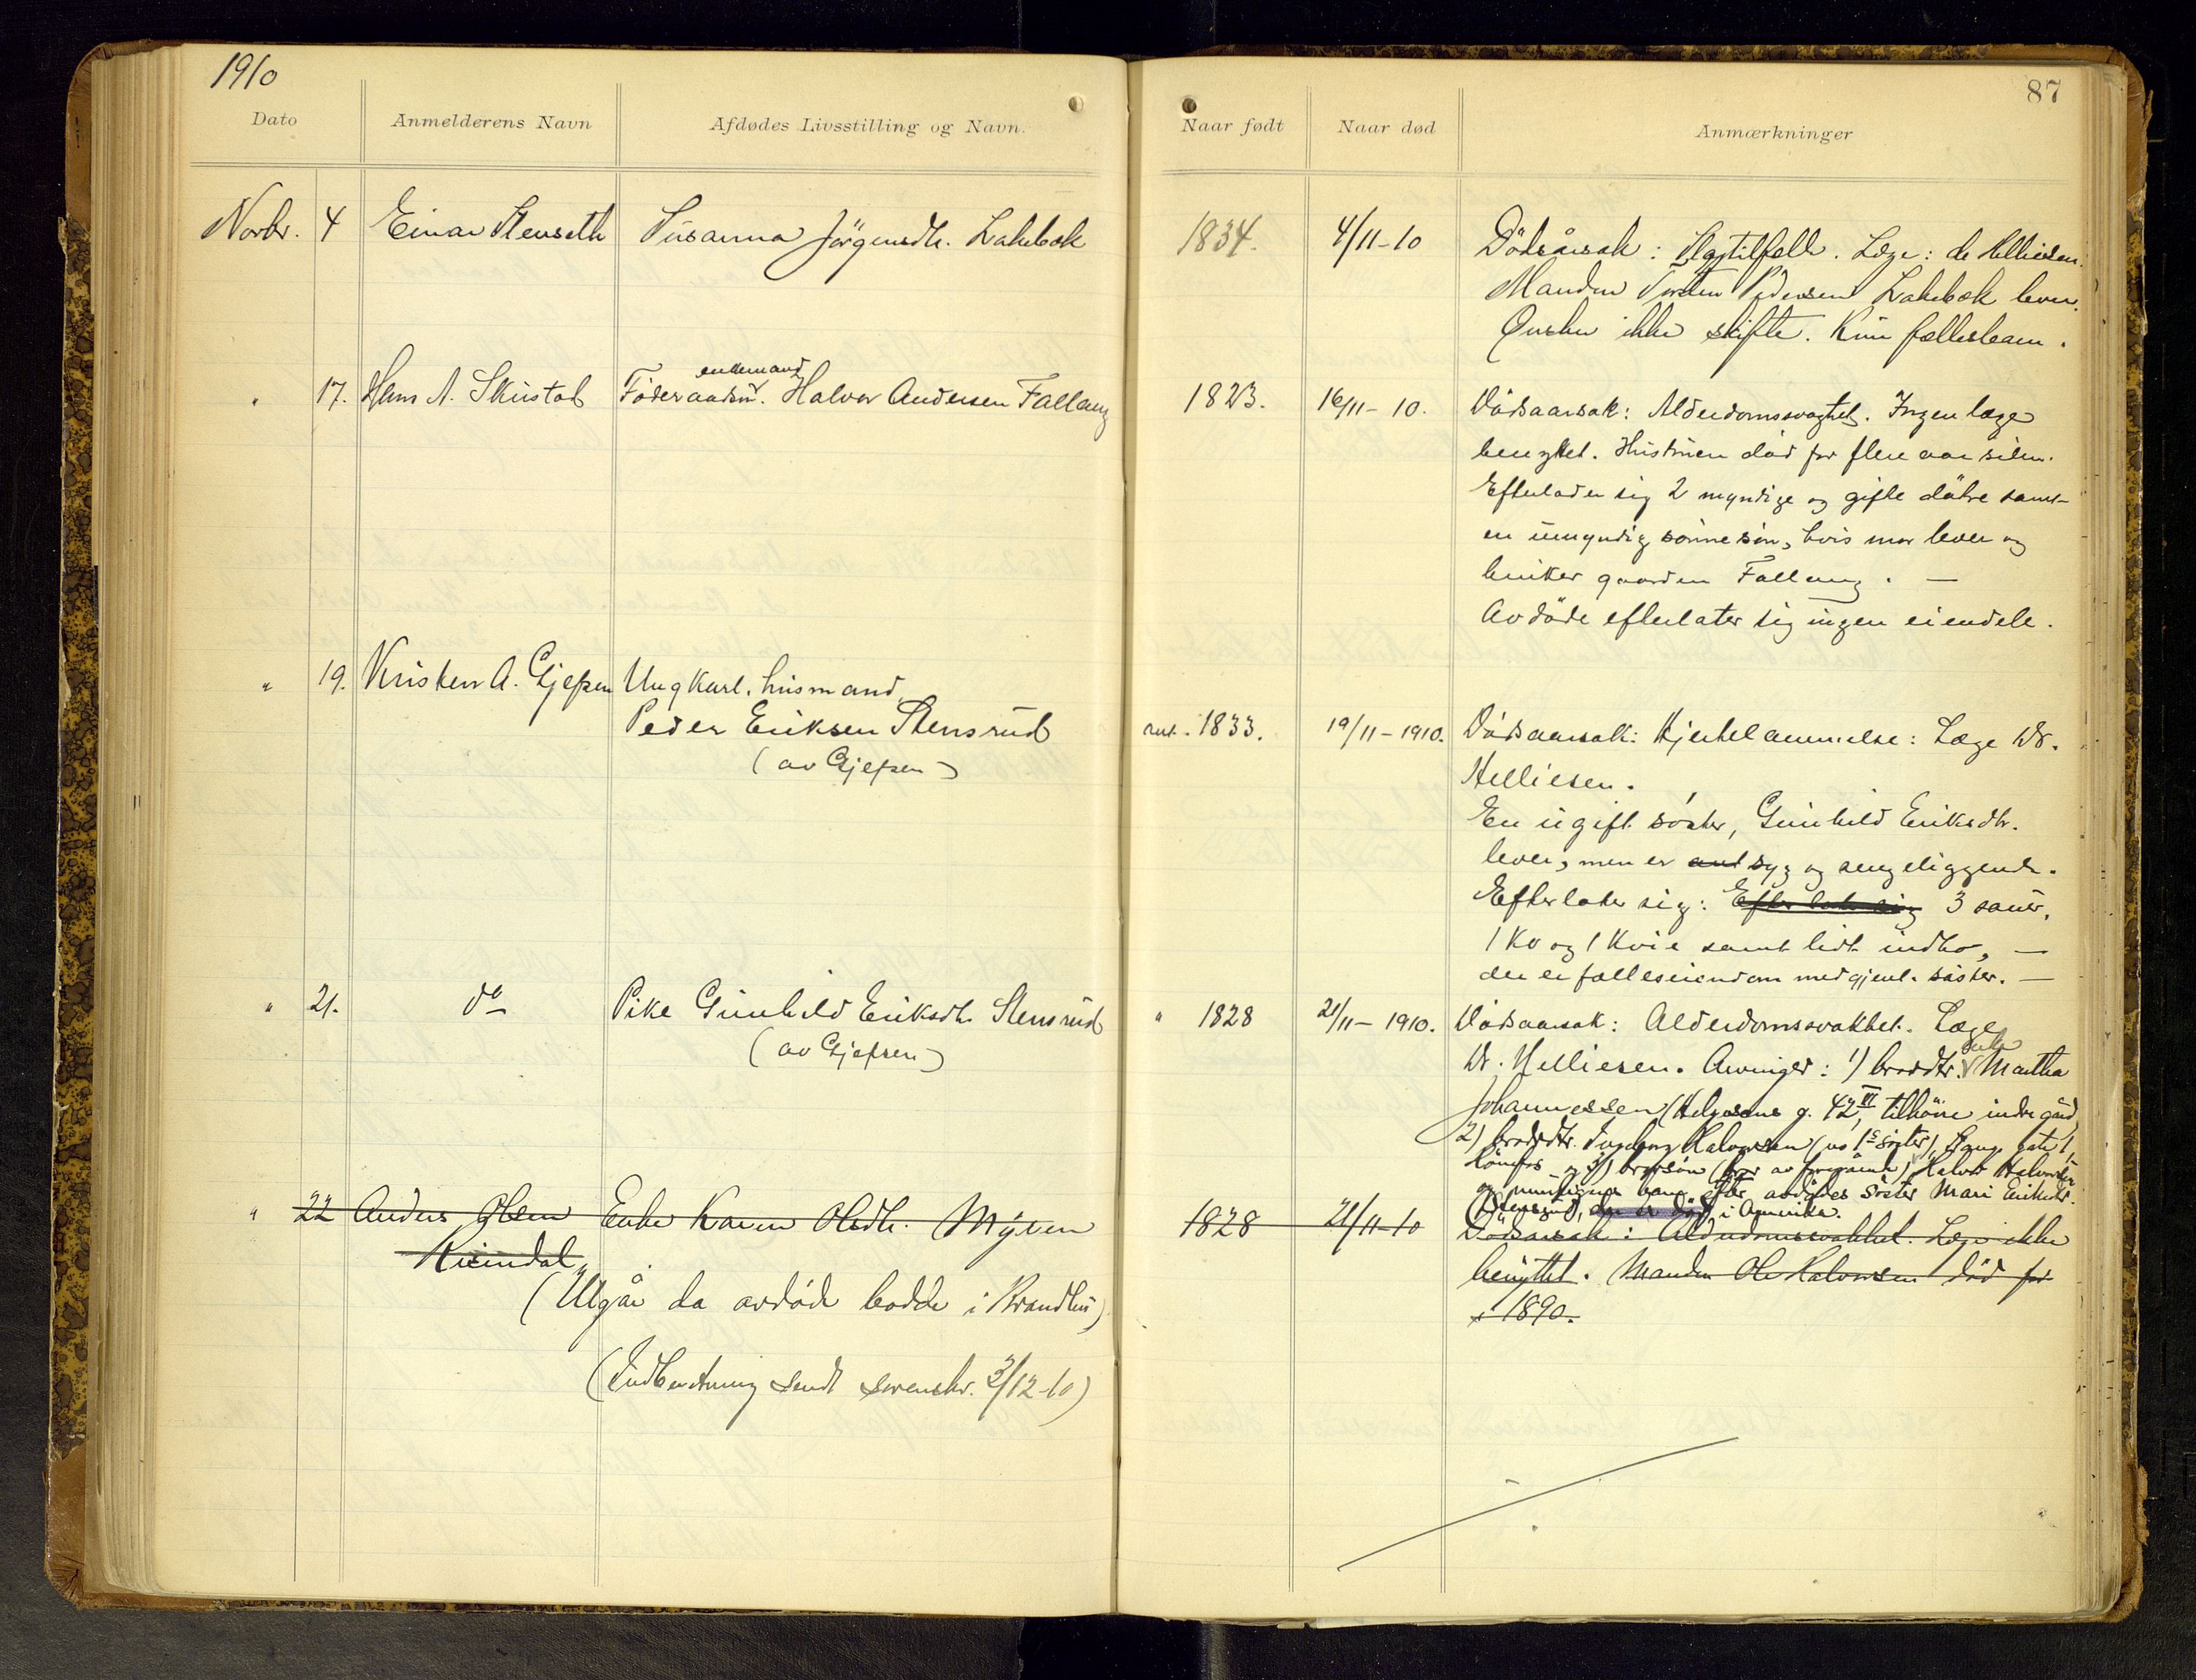 1910
87
Dato
Anmelderens Navn
Afdødes Livsstilling og Navn.
Naar født
Naar død
Anmærkninger
Novbr. 4 Einar Stenseth Susanna Jörgensdtr. Lakebæk 1834. 4/11-10 Dödsårsak: Slagtilfælle. Læge: de Helliesen.
Manden Torsten Pedersen Lakebæk lever.
Ønsker ikke skifte. Kun fællesbarn.
" 17. Hans A. Skustad Föderaadsm. enkemand Halvor Andersen Fallang 1823. 16/11-10. Dödsaarsak: Alderdomssvaghet. Ingen læge
benyttet. Hustruen död for flere aar siden.
Efterlader sig 2 myndige og gifte dötre samt
en umyndig sönnesön, hvis mor lever og
bruker gaarden Fallang. —
Avdöde efterlater sig ingen eiendele.
" 19. Kristen A. Gjefsen Ungkarl. husmand,
Peder Eriksen Stensrud
(av Gjefsen) 1833. 19/11-1910. Dödsaarsak: Hjertelammelse: Læge Dr.
Helliesen.
En ugift söster, Gunhild Eriksdtr.
lever, men er syg og sengeliggende.
Efterlater sig: Efterlater sig 3 sauer,
1 Ko og 1 Kvie samt lidt indbo, —
der er fælleseiendom med gjenl. söster. —
" 21. do Pike Gunhild Eriksdtr. Stensrud
(av Gjefsen) " 1828 21/11-1910. Dödsaarsak: Alderdomssvakhet. Læge
Dr. Helliesen. Arvinger: 1) brordtr. enke Martha
Johannessen (Helgesens g. 42 VI, tilhöire indre gård,
2) brordtr. Ingeborg Halvorsen (us 1s söster), gate 1,
Hönefos og 3) brorsön (bror av foregående) Halvor Halvorsen
og muligens barn efter avdödes söster Mari Eriksdtr.
Stensrud, der er död i Amerika.
" 22 Anders Olsen
Risindal Enke Karen Olsdtr. Myren 1828 21/11-10 Dödsårsak: Alderdomssvakhet. Læge ikke
benyttet. Manden Ole Halvorsen död för
1890.
(Utgår da avdöde bodde i Brandbu)
(Indberetning sendt sorenskr. 3/12-10)